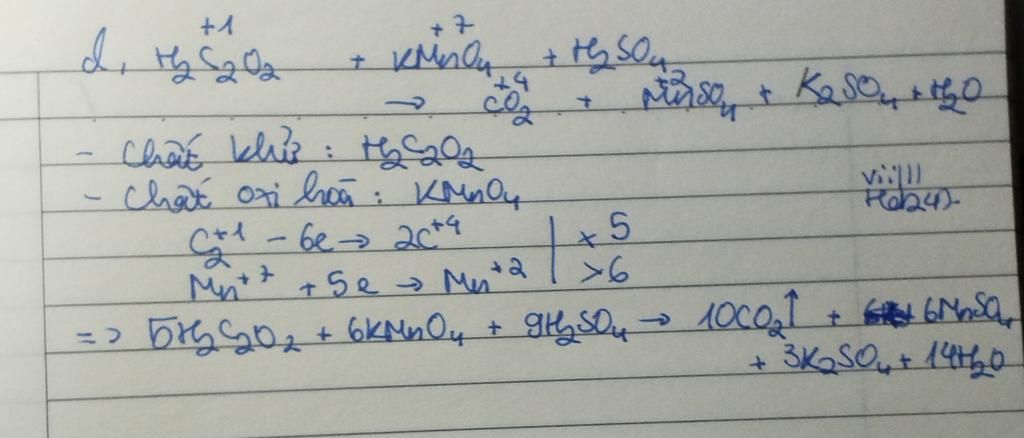 +1 +7
d, H₂C₂O₂ + KMnO₄ + H₂SO₄
+4 +2
→ CO₂ + MnSO₄ + K₂SO₄ + H₂O
- Chất khử : H₂C₂O₂
- Chất oxi hoá : KMnO₄
C₂⁺¹ - 6e → 2C⁺⁴ | × 5
Mn⁺⁷ + 5e → Mn⁺² | × 6
=> 5H₂C₂O₂ + 6KMnO₄ + 9H₂SO₄ → 10CO₂↑ + 6MnSO₄
+ 3K₂SO₄ + 14H₂O